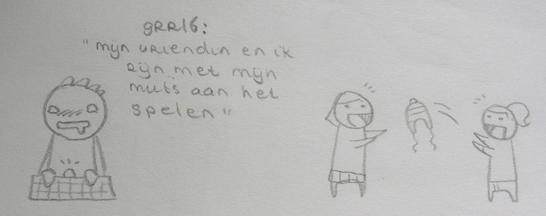 grrl6:
"mijn vriendin en ik
zijn met mijn
muts aan het
spelen"